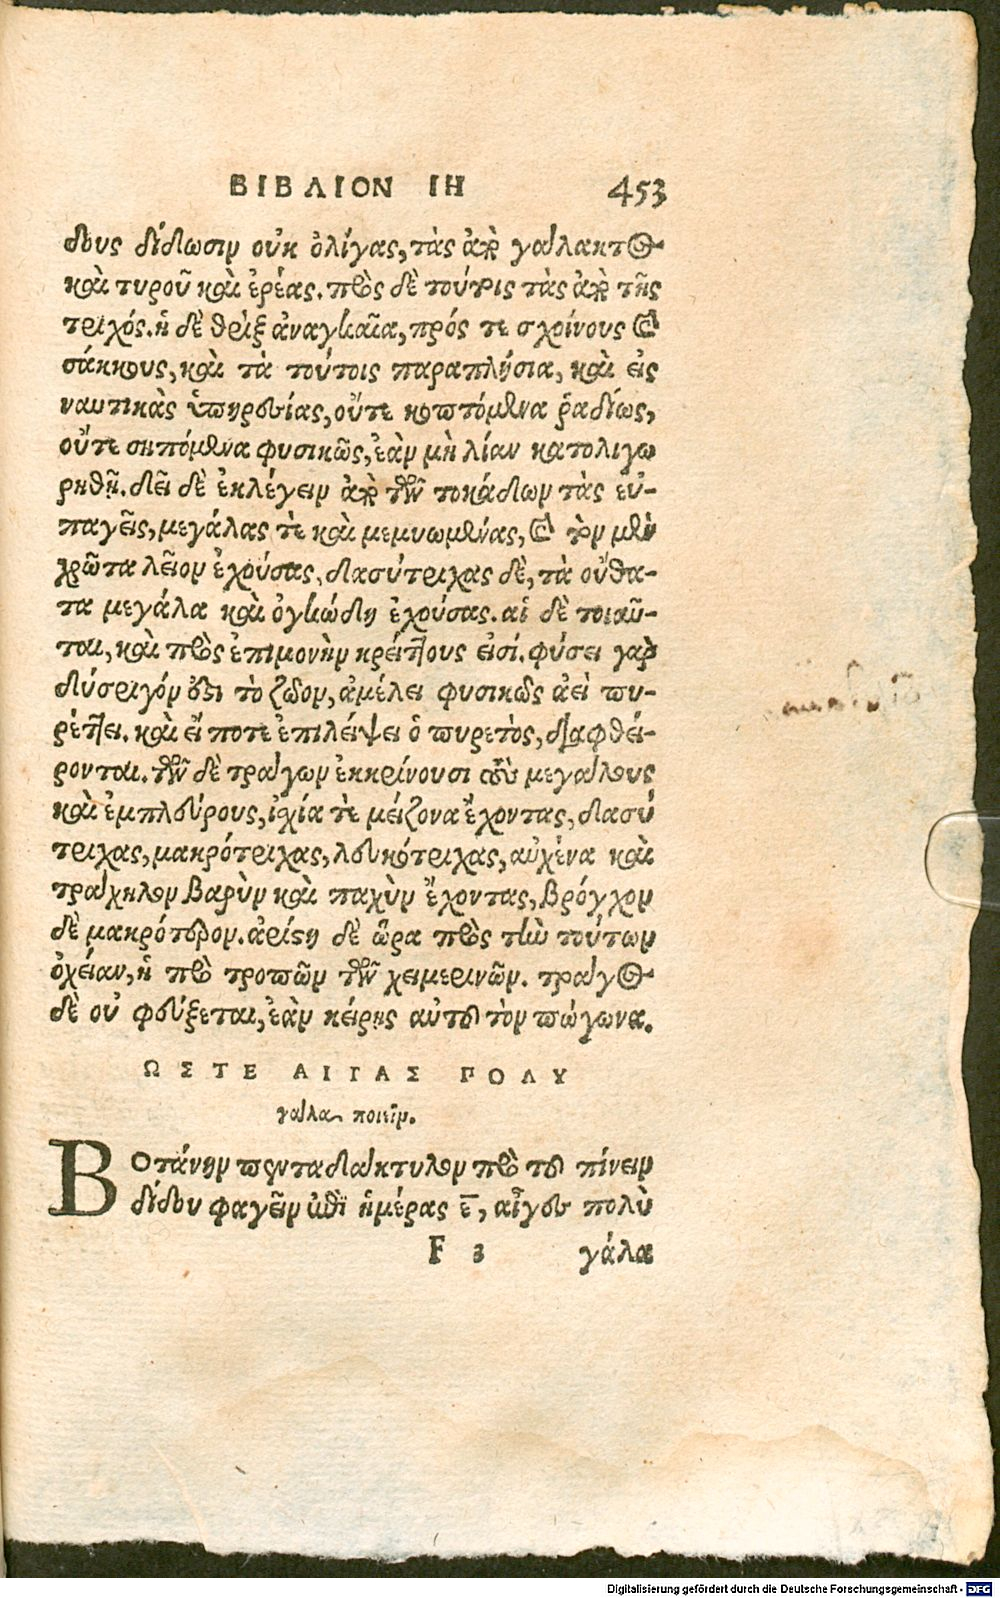 ΒΙΒΛΙΟΝ ΙΗ 453
δους δίδωσιν οὐκ ὀλίγας, τὰς ἀπὸ γάλακτος
καὶ τυροῦ καὶ ἐρέας. πρὸς δὲ τούτοις τὰς ἀπὸ τῆς
τριχός. ἡ δὲ θρὶξ ἀναγκαῖα, πρός τε σχοίνους καὶ
σάκκους, καὶ τὰ τούτοις παραπλήσια, καὶ εἰς
ναυτικὰς ὑπηρεσίας, οὔτε κοπτόμενα ῥαδίως,
οὔτε σηπόμενα φυσικῶς, ἐὰν μὴ λίαν κατολιγω
ρηθῇ. δεῖ δὲ ἐκλέγειν ἀπὸ τῶν τοκάδων τὰς εὐ-
παγεῖς, μεγάλας τὲ καὶ μεμυωμένας, καὶ τὸν μὲν
χρῶτα λεῖον ἐχούσας, δασύτριχας δὲ, τὰ οὔθα-
τα μεγάλα καὶ ὀγκώδη ἐχούσας. αἱ δὲ τοιαῦ-
ται, καὶ πρὸς ἐπιμονὴν κρείττους εἰσί. φύσει γὰρ
δύσριγόν ὂν τὸ ζῶον, ἀμέλει φυσικῶς ἀεὶ πυ-
ρέττει. καὶ εἴ ποτε ἐπιλείψει ὁ πυρετὸς, διαφθεί-
ρονται. τῶν δὲ τράγων ἐκκρίνουσι τοὺς μεγάλους
καὶ ἐμπλεύρους, ἰχία τὲ μείζονα ἔχοντας, δασύ
τριχας, μακρότριχας, λευκότριχας, αὐχένα καὶ
τράχηλον βαρὺν καὶ παχὺν ἔχοντας, βρόγχον
δὲ μακρότερον. ἀρίστη δὲ ὥρα πρὸς τὴν τούτων
ὀχείαν, ἡ πρὸ τροπῶν τῶν χειμερινῶν. τράγος
δὲ οὐ φεύξεται, ἐὰν κείρῃς αὐτοῦ τὸν πώγωνα.
ΩΣΤΕ ΑΙΓΑΣ ΠΟΛΥ
γάλα ποιεῖν.
Βοτάνην πενταδάκτυλον πρὸ τοῦ πίνειν
δίδου φαγεῖν ἐπὶ ἡμέρας ε̄, αἶγες πολὺ
F 3 γάλα
Digitalisierung gefördert durch die Deutsche Forschungsgemeinschaft - DFG